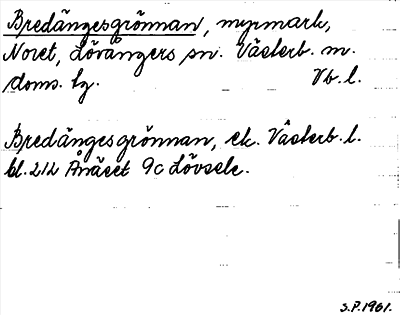 Bredängesgrönnan, myrmark,
Noret, Lövångers sn. Västerb. m.
doms. lg. Vb. l.
Bredängesgrönnan, ek. Västerb. l.
bl. 212 Ånäset 9c Lövsele.
S.P. 1961.